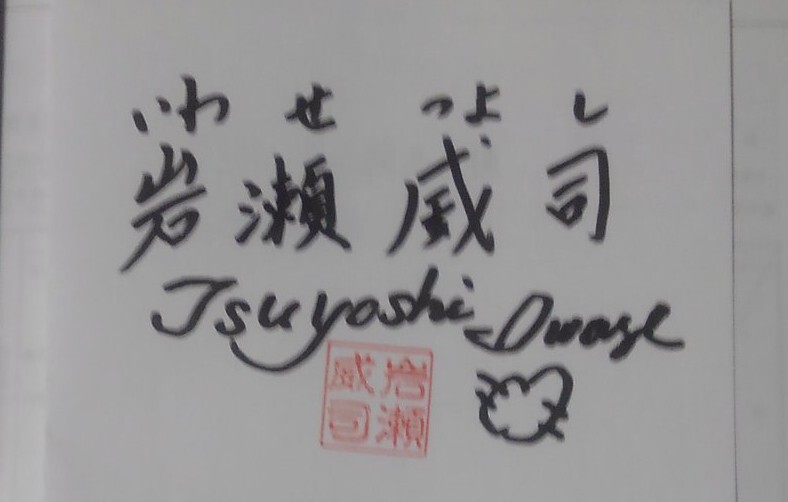 いわせ つよし
岩瀬威司
Tsuyoshi Iwase
岩瀬
威司